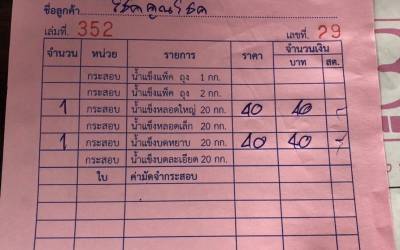 ชื่อลูกค้า โชคคูณโชค
เล่มที่. 352 เลขที่. 29
จำนวน หน่วย รายการ ราคา จำนวนเงิน
บาท สต.
กระสอบ น้ำแข็งแพ็ค ถุง 1 กก.
กระสอบ น้ำแข็งแพ็ค ถุง 2 กก.
1 กระสอบ น้ำแข็งหลอดใหญ่ 20 กก. 40 40 -
กระสอบ น้ำแข็งหลอดเล็ก 20 กก.
1 กระสอบ น้ำแข็งบดหยาบ 20 กก. 40 40 -
กระสอบ น้ำแข็งบดละเอียด 20 กก.
ใบ ค่ามัดจำกระสอบ